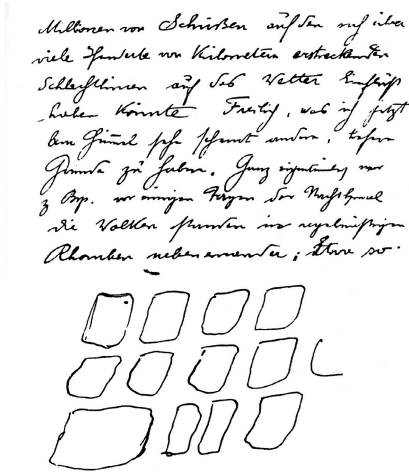 Millionen von Schüßen auf den sich über
viele Hunderte von Kilometern erstreckenden
Schlachtlinien auf das Wetter Einfluß
haben könnte Freilich, was ich jetzt
am Himmel sehe scheint andere, tiefere
Gründe zu haben. Ganz eigentümlich war
z Bsp. vor einigen Tagen der Nachthimmel
die Wolken standen in regelmäßigen
Rhomben nebeneinander; Etwa so.